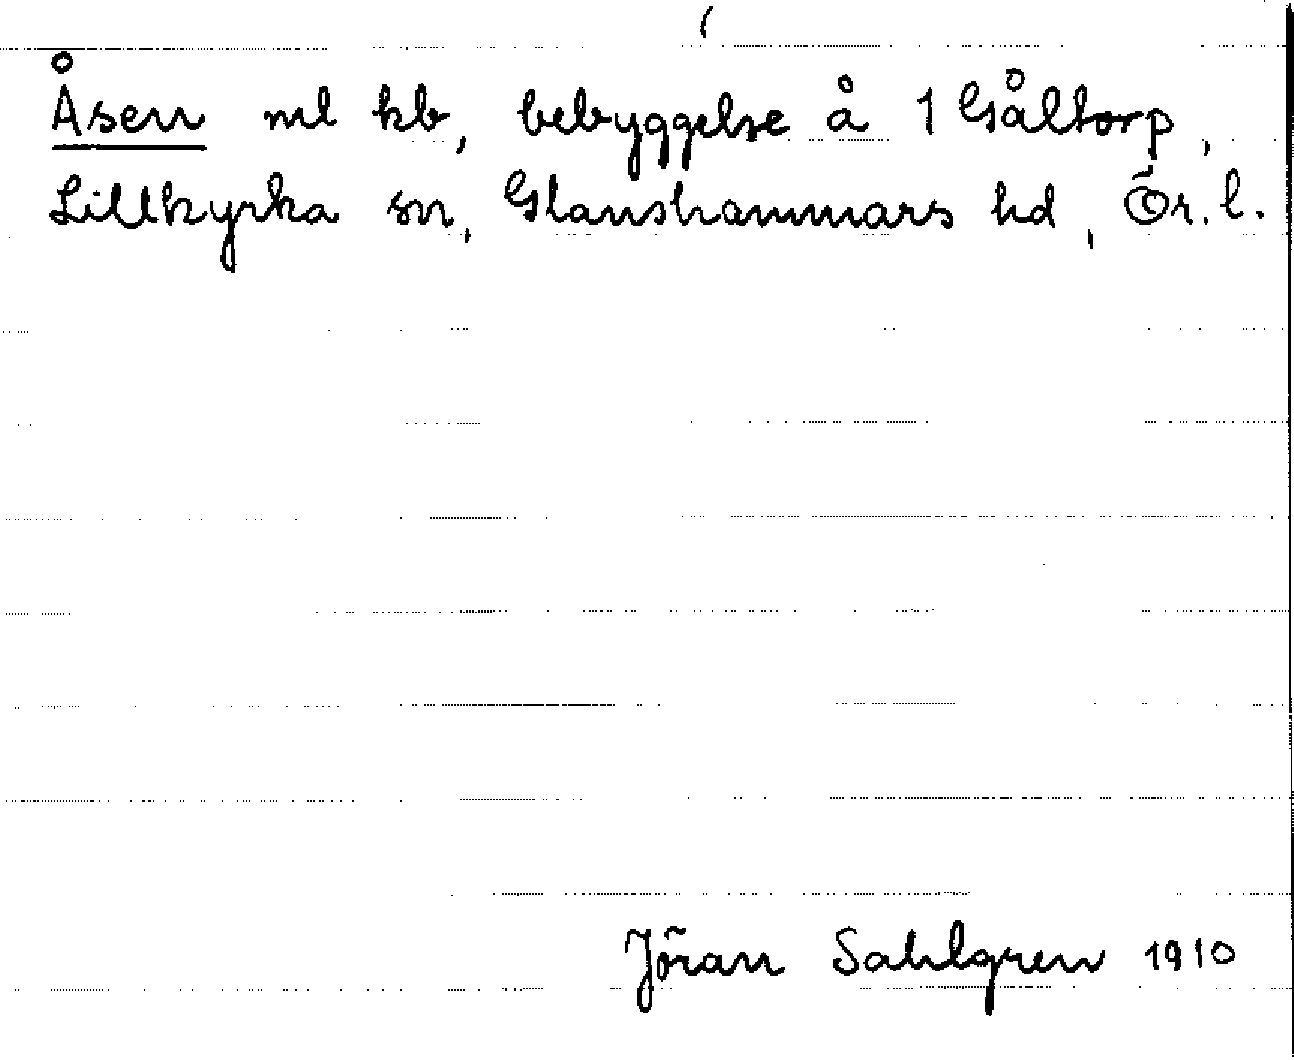 Åsen ml kb, bebyggelse å 1 Gåltorp,
Lillkyrka sn, Glanshammars hd, Ör. l.
Jöran Sahlgren 1910